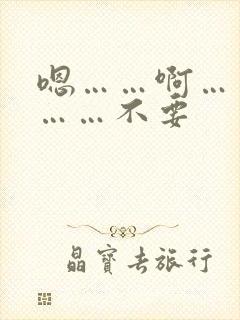 嗯……啊…
……不要
晶寶去旅行